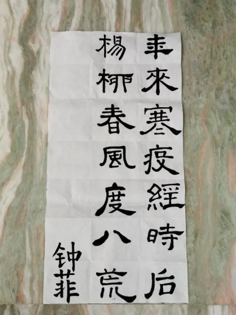 年來寒疫經時后
楊柳春風度八荒
钟菲